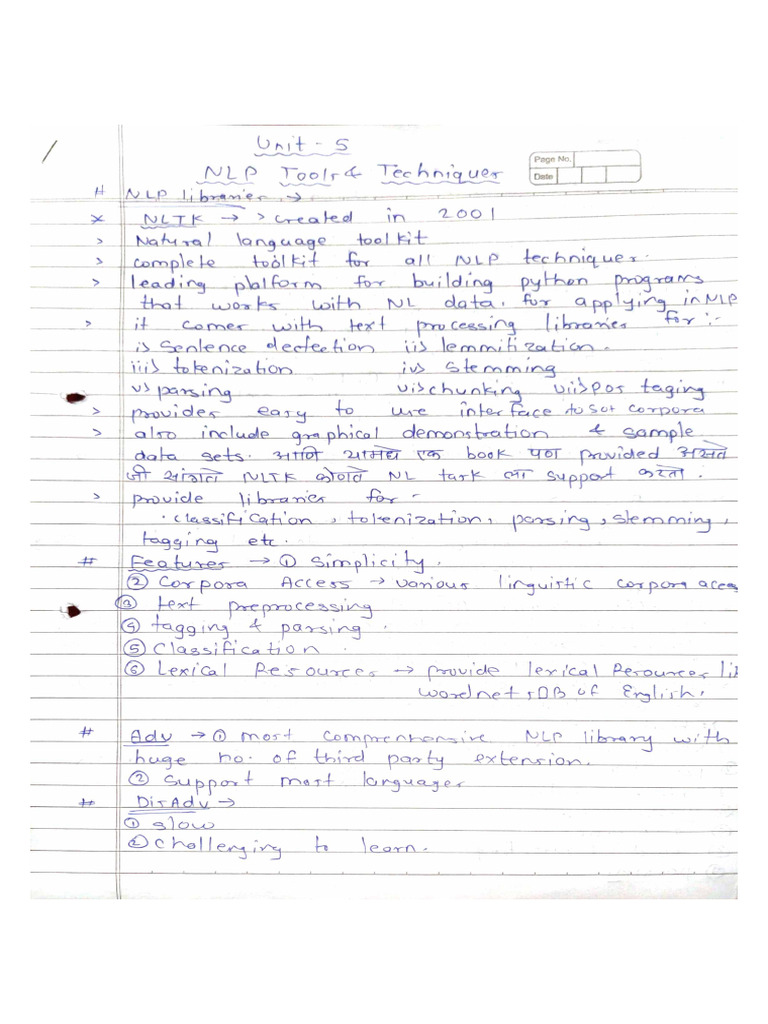 Unit - 5
Page No.
NLP Tools & Techniques
Date
# NLP libraries →
x NLTK → > created in 2001
> Natural language toolkit
> complete toolkit for all NLP techniques.
> leading platform for building python programs
that works with NL data. for applying in NLP
> it comes with text processing libraries for :-
i> Sentence dectection ii> lemmitization.
iii> tokenization iv> stemming
v> parsing vi> chunking vii> pos taging
> provides easy to use interface to 50+ corpora
> also include graphical demonstration & sample
data sets. आणि यामध्ये एक book पण provided असते
जी सांगते NLTK कोणते NL task ला support करतो.
> provide libraries for -
. classification, tokenization, parsing, stemming,
tagging etc.
# Features → ① Simplicity.
② Corpora Access → various linguistic corpora acces
③ text preprocessing
④ tagging & parsing.
⑤ Classification.
⑥ Lexical Resources → provide lexical Resources li
wordnet, DB of English.
# Adv → ① most comprenhensive NLP library with
huge no. of third party extension.
② support most languages
# DisAdv →
① slow
② challenging to learn.